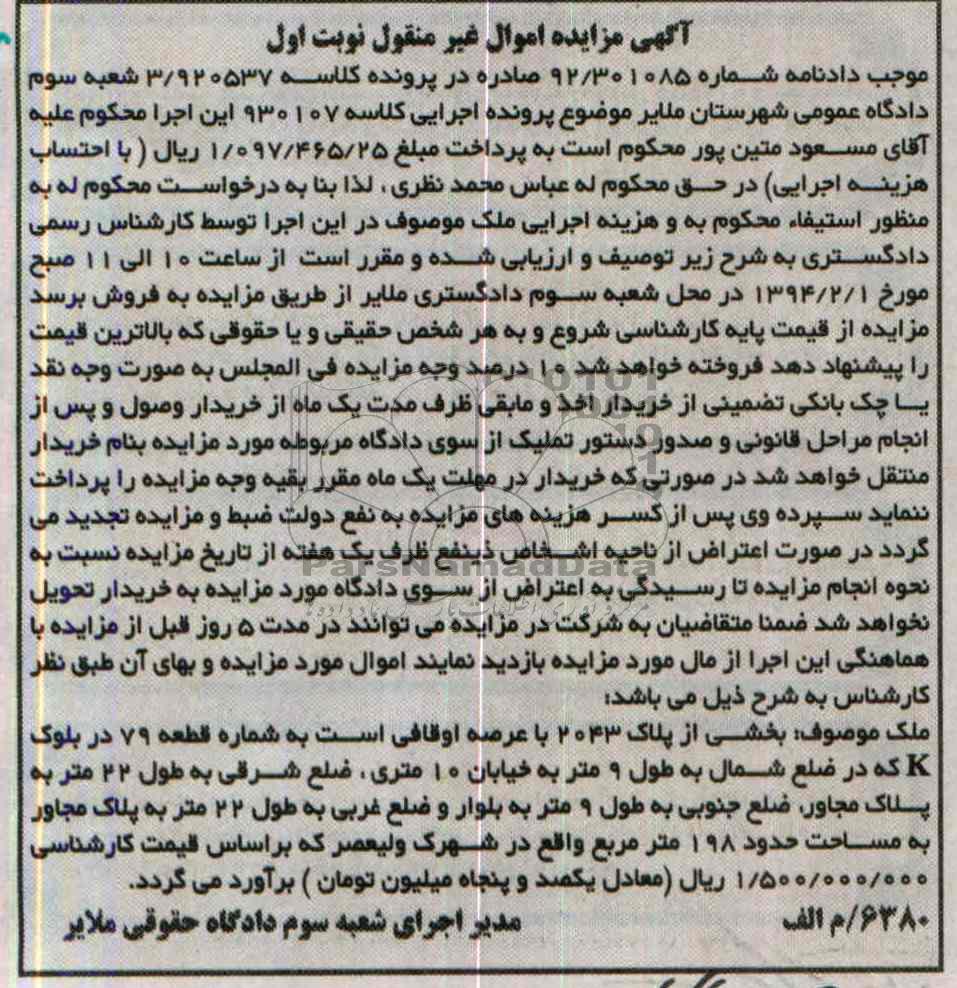 آگهی مزایده اموال غیر منقول نوبت اول
موجب دادنامه شماره ۹۲/۳۰۱۰۸۵ صادره در پرونده کلاسه ۳/۹۲۰۵۳۷ شعبه سوم
دادگاه عمومی شهرستان ملایر موضوع پرونده اجرایی کلاسه ۹۳۰۱۰۷ این اجرا محکوم علیه
آقای مسعود متین پور محکوم است به پرداخت مبلغ ۱/۰۹۷/۴۶۵/۲۵ ریال ( با احتساب
هزینه اجرایی) در حق محکوم له عباس محمد نظری ، لذا بنا به درخواست محکوم له به
منظور استیفاء محکوم به و هزینه اجرایی ملک موصوف در این اجرا توسط کارشناس رسمی
دادگستری به شرح زیر توصیف و ارزیابی شده و مقرر است از ساعت ۱۰ الی ۱۱ صبح
مورخ ۱۳۹۴/۲/۱ در محل شعبه سوم دادگستری ملایر از طریق مزایده به فروش برسد
مزایده از قیمت پایه کارشناسی شروع و به هر شخص حقیقی و یا حقوقی که بالاترین قیمت
را پیشنهاد دهد فروخته خواهد شد ۱۰ درصد وجه مزایده فی المجلس به صورت وجه نقد
یا چک بانکی تضمینی از خریدار اخذ و مابقی ظرف مدت یک ماه از خریدار وصول و پس از
انجام مراحل قانونی و صدور دستور تملیک از سوی دادگاه مربوطه مورد مزایده بنام خریدار
منتقل خواهد شد در صورتی که خریدار در مهلت یک ماه مقرر بقیه وجه مزایده را پرداخت
ننماید سپرده وی پس از کسر هزینه های مزایده به نفع دولت ضبط و مزایده تجدید می
گردد در صورت اعتراض از ناحیه اشخاص ذینفع ظرف یک هفته از تاریخ مزایده نسبت به
نحوه انجام مزایده تا رسیدگی به اعتراض از سوی دادگاه مورد مزایده به خریدار تحویل
نخواهد شد ضمنا متقاضیان به شرکت در مزایده می توانند در مدت ۵ روز قبل از مزایده با
هماهنگی این اجرا از مال مورد مزایده بازدید نمایند اموال مورد مزایده و بهای آن طبق نظر
کارشناس به شرح ذیل می باشد:
ملک موصوف: بخشی از پلاک ۲۰۴۳ با عرصه اوقافی است به شماره قطعه ۷۹ در بلوک
K که در ضلع شمال به طول ۹ متر به خیابان ۱۰ متری ، ضلع شرقی به طول ۲۲ متر به
پلاک مجاور، ضلع جنوبی به طول ۹ متر به بلوار و ضلع غربی به طول ۲۲ متر به پلاک مجاور
به مساحت حدود ۱۹۸ متر مربع واقع در شهرک ولیعصر که براساس قیمت کارشناسی
۱/۵۰۰/۰۰۰/۰۰۰ ریال (معادل یکصد و پنجاه میلیون تومان ) برآورد می گردد.
۶۳۸۰/م الف
مدیر اجرای شعبه سوم دادگاه حقوقی ملایر
ParsNamadData